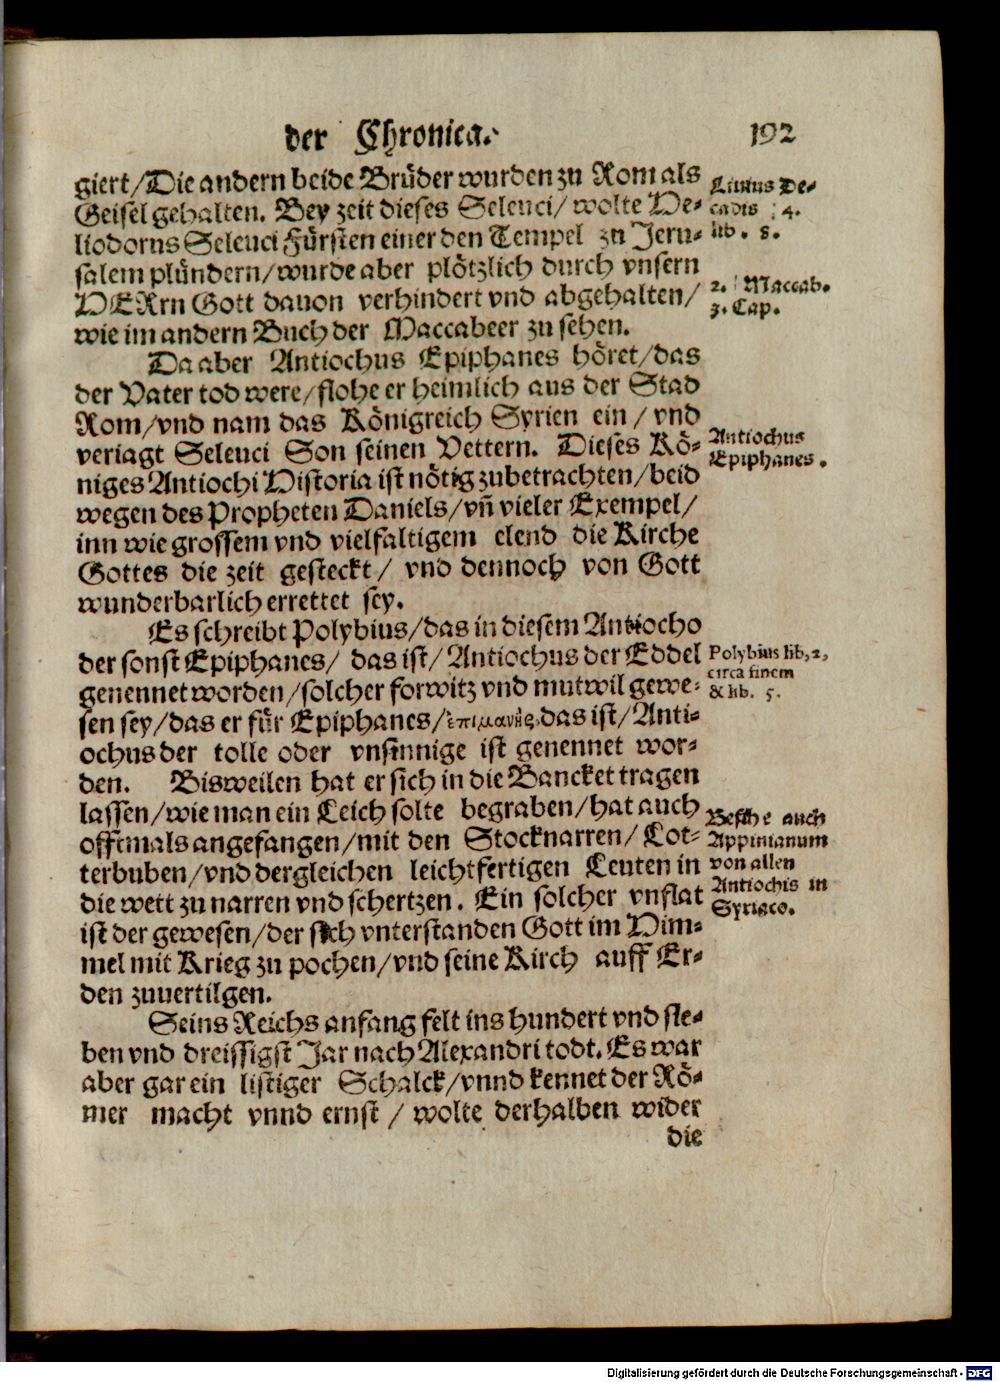 der Chronica.
192
giert/Die andern beide Brüder wurden zu Rom als
Geisel gehalten. Bey zeit dieses Seleuci/ wolte He-
liodorus Seleuci Fürsten einer den Tempel zu Jeru-
salem plündern/wurde aber plötzlich durch vnsern
HERrn Gott dauon verhindert vnd abgehalten/
wie im andern Buch der Maccabeer zu sehen.
Da aber Antiochus Epiphanes höret/das
der Vater tod were/flohe er heimlich aus der Stad
Rom/vnd nam das Königreich Syrien ein / vnd
veriagt Seleuci Son seinen Vettern. Dieses Kö-
niges Antiochi Historia ist nötig zubetrachten/beid
wegen des Propheten Daniels/vn̄ vieler Exempel/
inn wie grossem vnd vielfaltigem elend die Kirche
Gottes die zeit gesteckt / vnd dennoch von Gott
wunderbarlich errettet sey.
Es schreibt Polybius/das in diesem Antiocho
der sonst Epiphanes/ das ist/ Antiochus der Eddel
genennet worden/solcher forwitz vnd mutwil gewe-
sen sey/das er für Epiphanes/ἐπιμανὴς das ist/ Anti-
ochus der tolle oder vnsinnige ist genennet wor-
den. Bisweilen hat er sich in die Bancket tragen
lassen/wie man ein Leich solte begraben/hat auch
offtmals angefangen/mit den Stocknarren/ Lot-
terbuben/vnd dergleichen leichtfertigen Leuten in
die wett zu narren vnd schertzen. Ein solcher vnflat
ist der gewesen/der sich vnterstanden Gott im Him-
mel mit Krieg zu pochen/vnd seine Kirch auff Er-
den zuuertilgen.
Seins Reichs anfang felt ins hundert vnd sie-
ben vnd dreissigst Jar nach Alexandri todt. Es war
aber gar ein listiger Schalck/vnnd kennet der Rö-
mer macht vnnd ernst / wolte derhalben wider
die
Liuius De-
cadis 4.
lib. 5.
2. Maccab.
3. Cap.
Antiochus
Epiphanes.
Polybius lib, 2,
circa finem
& lib. 5.
Besihe auch
Appinianum
von allen
Antiochis in
Syriaco.
Digitalisierung gefördert durch die Deutsche Forschungsgemeinschaft - DFG